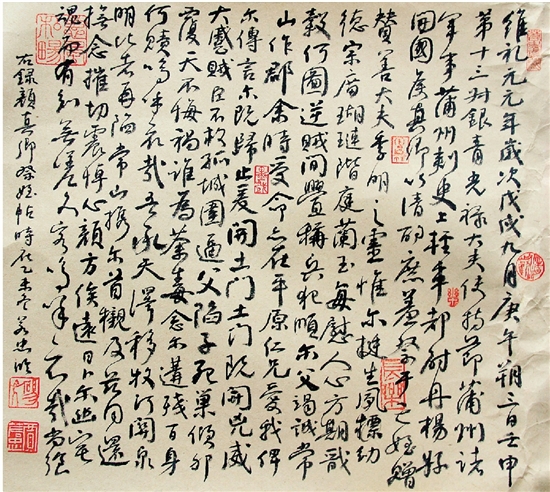 維乾元元年歲次戊戌九月庚午朔三日壬申
第十三叔銀青光祿大夫使持節蒲州諸
軍事蒲州刺史上輕車都尉丹楊縣
開國侯真卿以清酌庶羞祭于亡姪贈
贊善大夫季明之靈惟爾挺生夙標幼
德宗廟瑚璉階庭蘭玉每慰人心方期戩
穀何圖逆賊間釁稱兵犯順爾父竭誠常
山作郡余時受命亦在平原仁兄愛我俾
爾傳言爾既歸止爰開土門土門既開兇威
大蹙賊臣不救孤城圍逼父陷子死巢傾卵
覆天不悔禍誰為荼毒念爾遘殘百身
何贖嗚呼哀哉吾承天澤移牧河關泉
明比者再陷常山攜爾首櫬及茲同還
撫念摧切震悼心顏方俟遠日卜爾幽宅
魂而有知無嗟久客嗚呼哀哉尚饗
右錄顏真卿祭姪帖時在乙未